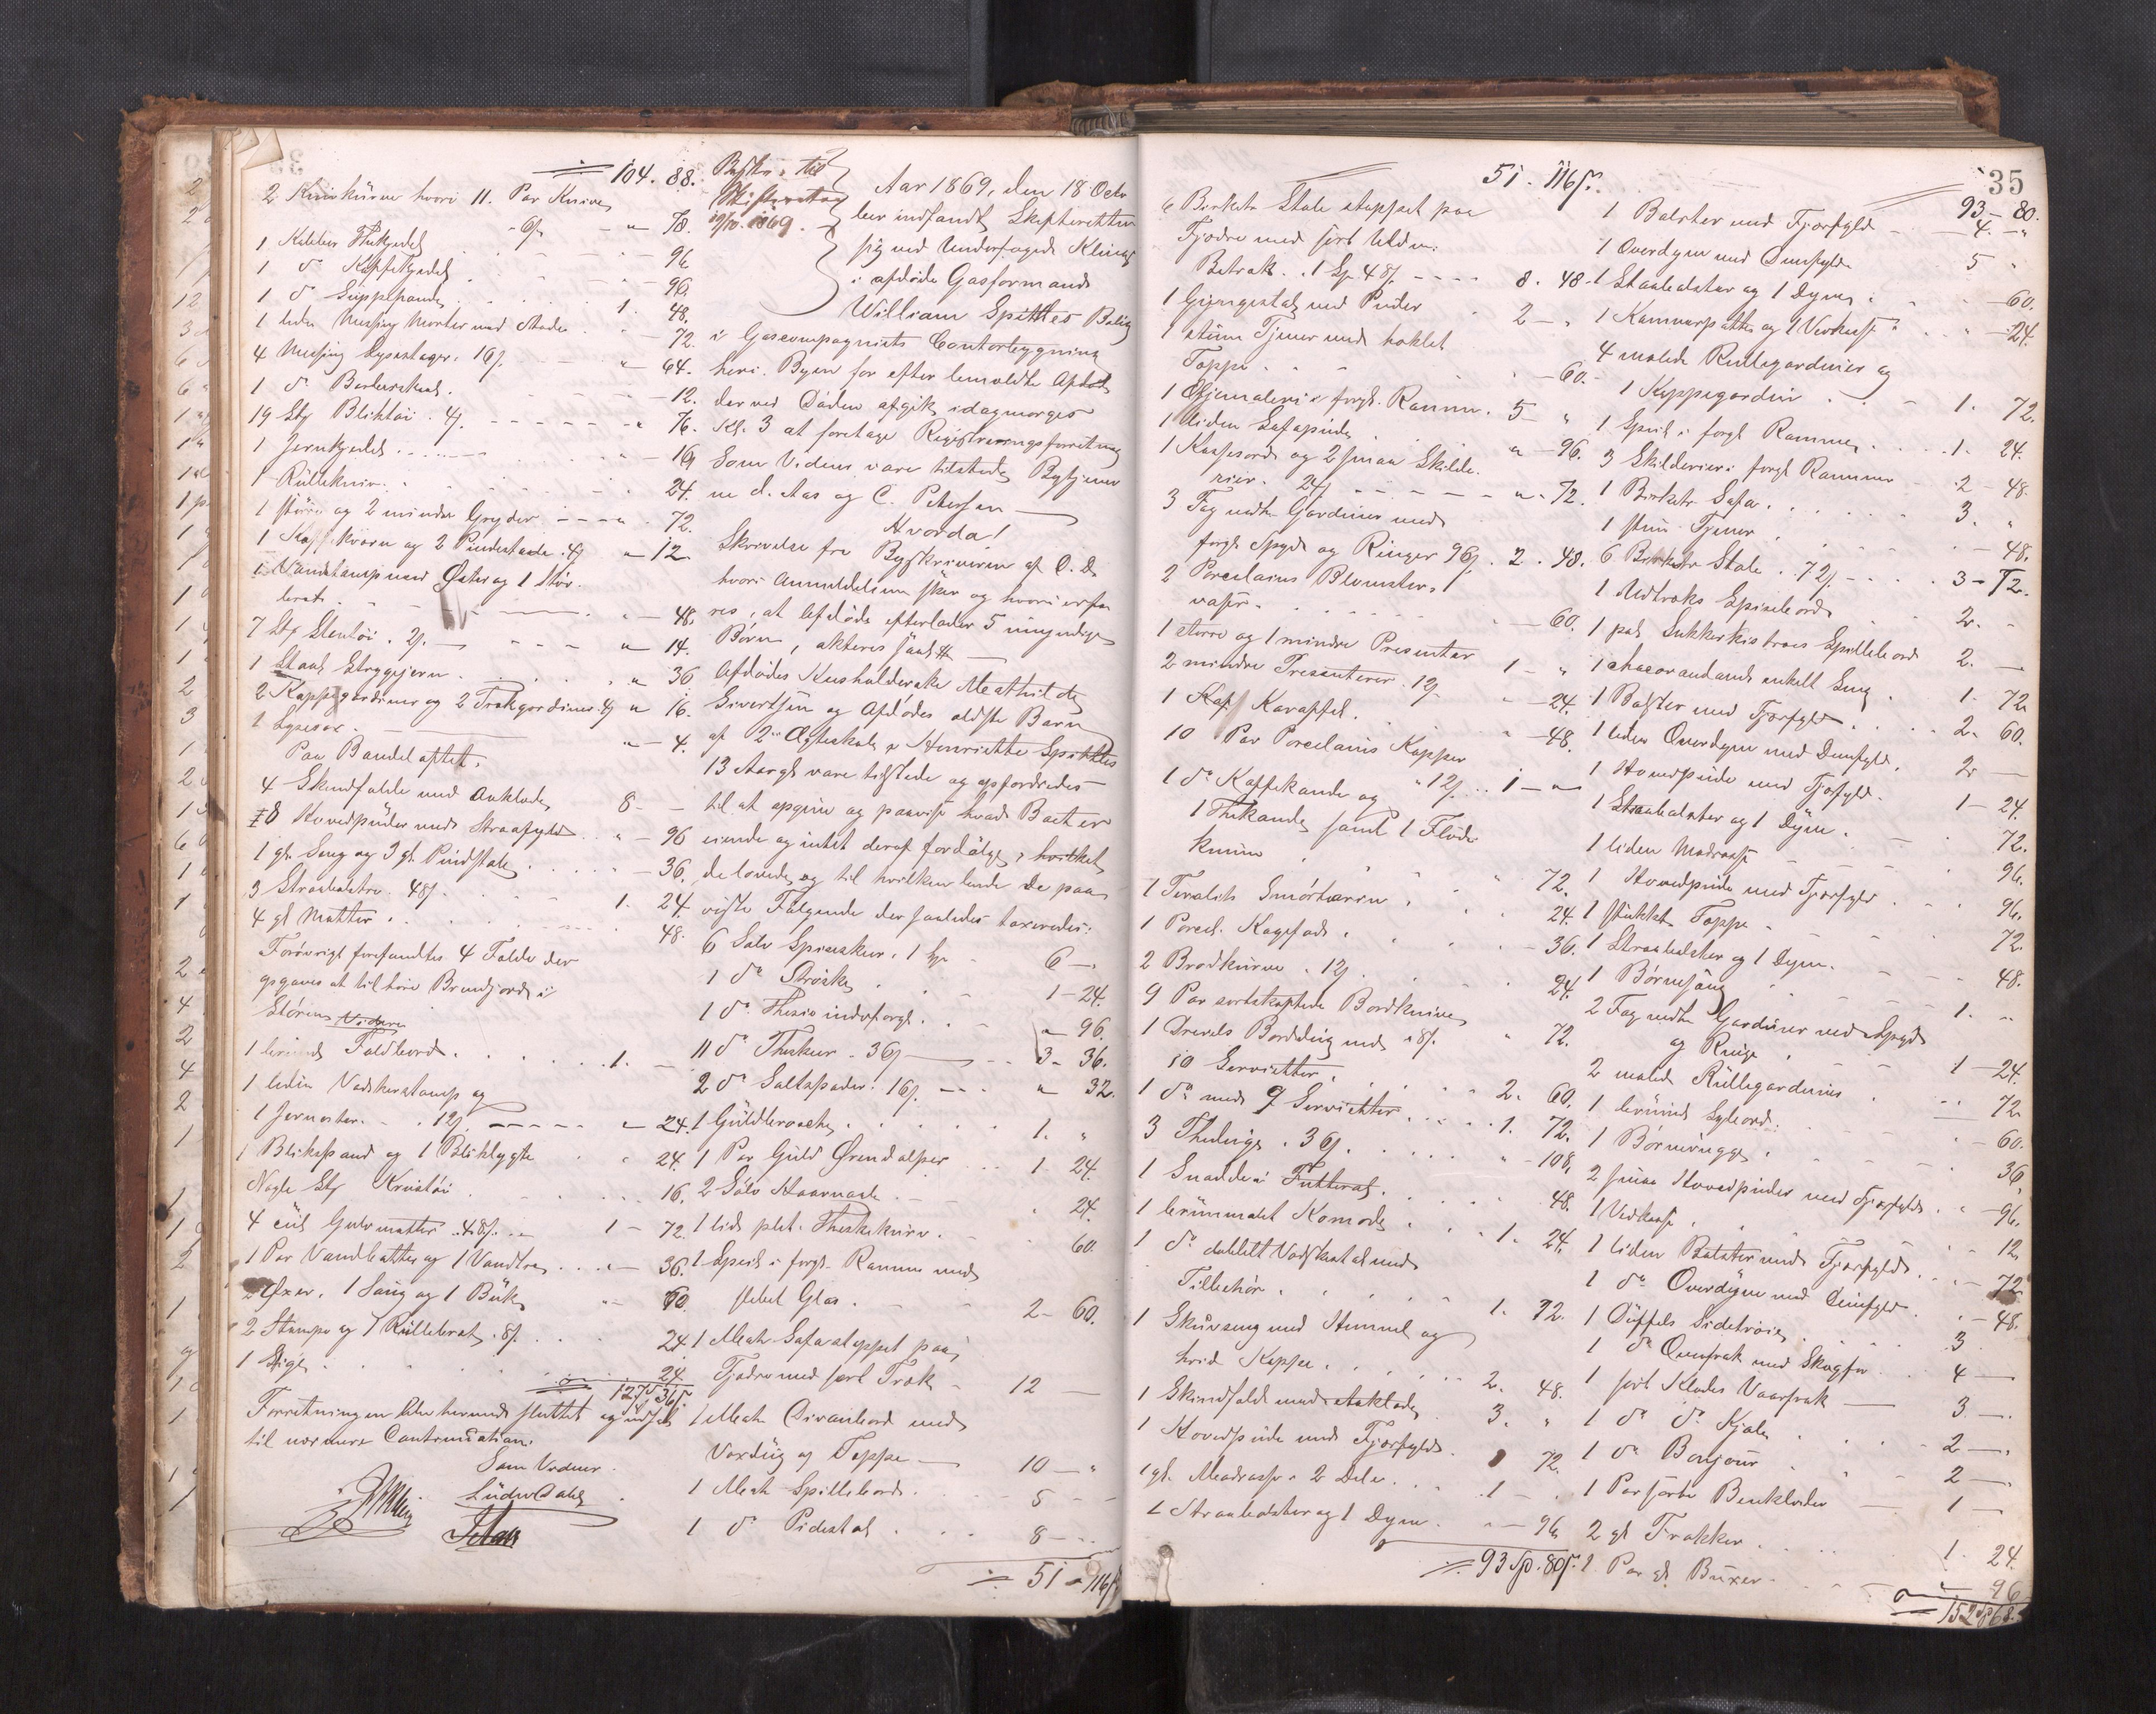 ÷ 104. 88.
2 Knivkurve hvori 11. Par Knive
6/- " 78.
1 Kobber Thekjedel 96
1 do Kaffekjedel 96
1 do Suppepande 1. 48.
1 liden Messing Morter med Støder 72.
4 Messing Lysestager. 16/. " 64.
1 do Barberskaal. 12.
19 Stk Bliktøi. 4/. " 76.
1 Jernkjedel 16
1 Rullekniv. 24.
1 større og 2 mindre Gryder 72.
1 Kaffekværn og 2 Pindestade. 4/ " 12.
1 Vandstamp med Øse og 1 Stør.
" 48.
7 Stk Stentøi. 2/. " 14.
1 Staal Strygejern. " 36
2 Kappegardiner og 2 Trækgardiner. 4/ " 16.
1 Lysesax. " 4.
Paa Bandeloftet.
4 Skindfælde med Aaklæde 8 -
8 Hovedpuder med Straafyld " 96
1 gl. Seng og 3 gl. Pindstole 36.
3 Straabolstre. 48/. 1. 24.
4 gl Matter. 48.
Forøvrigt forefandtes 4 Fælde der
opgaves at tilhøre Brandjorde i
Støren
1 brunt Foldbord. 1. -
1 liden Vadskerstamp og
1 Jernøster. 12/. " 24.
1 Blikspand og 1 Bliklygte " 24.
Nogle Stk Krustøi 16.
4 Gulvmatter. 48/. 1 - 72.
1 Par Vandbøtter og 1 Vandtræ 36.
2 Øxer, 1 Saug og 1 Buk " 60.
2 Stampe og 1 Rullebræt. 8/. 24.
1 Stige 24.
÷ 127 Sp 36 s.
Forretningen blev hermed sluttet og udsat
til nærmere Continuation.
Som Vidner.
Ludv Dahl
Byskr. til
Skifteretten
19/10. 1869.
Aar 1869, den 18 Octr
blev indfandt Skifteretten
sig ved Underfoged Klingø
i afdøde Gasformand
William Spittles Bolig
i Gascompagniets Contorbygning
heri Byen for efter anmeldte Afdøde
der ved Døden afgik idagmorges
Kl. 3 at foretage Registreringsforretning
Som Vidner vare tilstede Bytjener
ne d. Aas og C. Petersen
Hvorda!
Skrivelse fra Byskriveren af D. D.
hvori Anmeldelsen sker og hvori erfa
res, at Afdøde efterlader 5 umyndige
Børn, akteres saal. #
Afdødes Husholderske Mathilde
Sivertsen og Afdødes ældste Barn
af 2det Ægteskab, Henriette Spittles
13 Aar gl vare tilstede og opfordredes
til at opgive og paavise hvad Boet er
eiende og intet deraf fordølge, hvilket
de lovede og til hvilken Ende de paa
viste Følgende der saaledes taxeredes:
6 Sølv Spiseskeer. 1 Sp 6 -
1 do Strøske 1 - 24.
1 do Thesie indvforgl. " 96.
11 do Theskeer. 36/ 3 - 36.
2 do Saltspader. 16/. " 32.
1 Guldbroche. 1. "
1 Par Guld Ørendobper 1 24.
2 Sølv Haarnaale 24.
1 lidt plet. Theskekurv. 60.
1 Speil i forgl. Ramme med
slebet Glas. 2 - 60.
1 Mah Sofa stoppet paa
Fjædre med sort Træk 12 -
1 Mah Divanbord med
Voxdug og Teppe 10 - "
1 Mah Spillebord. 5 - -
1 do Pidestal 8 - -
÷ 51 - 116 s
51. 116 s.
35
6 Birketr Stole stoppet paa
Fjædre med sort Ulden
Betræk. 1 Sp 48/. 8. 48.
1 Gyngestol med Puder 2 - "
1 stum Tjener med hæklet
Teppe 60.
1 Oljemaleri i forgl. Ramme. 5 "
1 liden Sofapude
1 Kassebord og 2 smaa Skilde " 96.
rier. 24/ " 72.
3 Fag nedtr Gardiner med
forgl Spyd og Ringer 96/. 2. 48.
2 Porcelains Blomster
vaser. 60.
1 større og 1 mindre Presenter 1 - "
2 mindre Presenterer. 12/. 24.
1 Kaf Karaffel. 48.
10 Par Porcelains Kopper
" 12/. 1 - "
1 do Kaffekande og
1 Thekande samt 1 Fløde
kumme 72.
1 Smørkurv 24.
1 Porcel. Kagefad. 36.
2 Brødkurve. 12/. 24.
9 Par sortskaftede Bordknive
" 8/. " 72.
1 Dreiels Borddug med
10 Servietter. 2. 60.
1 do med 9 Servietter 1. 72.
3 Theduge. 36/. " - 108.
1 Snadde i Futteral. 48.
1 brunmalet Komode 1. 24.
1 do dobbelt Vadskestol med
Tilbehør. 1. 72.
1 Skuvseng med Himmel og
hvid Kappe. 2. 48.
1 Skindfeld med Aaklæde 3. "
1 Hovedpude med Fjærfyld. 72.
1 gl. Madrasse i 2 Dele. 1 -
1 Straabolster og 1 Dyne. 96
÷ 93 Sp. 80 s.
93 - 80.
1 Bolster med Fjærfyld 4. "
1 Overdyne med Dunfyld 5 "
1 Straabolster og 1 Dyne 60.
1 Kammerpotte og 1 Vedkasse 24.
4 malede Rullegardiner og
1 Kappegardin 1. 72.
1 Speil i forgl Ramme 1. 24.
3 Skilderier i forgl Rammer 2 - 48.
1 Birketr Sofa. 3. "
1 stum Tjener 48.
6 Birketr Stole. 72/. 3 - 72.
1 Udtræks Spisebord 2. -
1 pol. Sukkerkistræes Spillebord 2. -
1 enkelt Seng 1. 72
1 Bolster med Fjærfyld 2. 60.
1 liden Overdyne med Dunfyld. 2. -
1 Hovedpude med Fjærfyld. 1 - 24.
1 Straabolster og 1 Dyne. 72.
1 liden Madrasse 96.
1 Hovedpude med Fjærfyld 96.
1 stukket Teppe 72.
1 Straabolster og 1 Dyne. 48.
1 Børneseng 1. "
2 Fag nedtr Gardiner med Spyd
og Ringe 1 - 24.
2 malede Rullegardiner 72
1 brunt Sybord. 60.
1 Børnevugge 36
2 smaa Hovedpuder med Fjærfyld. 96.
1 Vedkasse 12
1 liden Bolster med Fjærfyld. 72.
1 do Overdyne med Dunfyld. 48.
1 Duffels Sidetrøie 3
1 do Overfrak med Skindfor 4 -
1 sort Klædes Vaarfrak 3 -
1 do do Kjole 2 -
1 do Bonjour 2 -
1 Par sorte Benklæder 1 -
2 gl Frakker 1. 24.
1 Par gl. Buxer. 96
152 Sp 68.